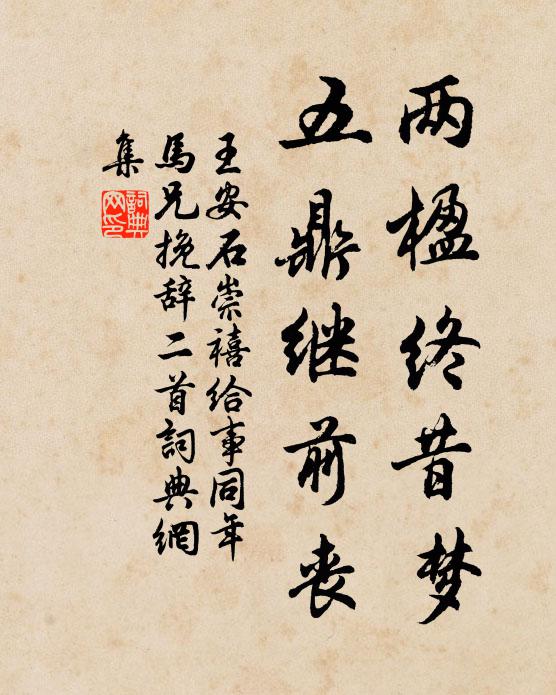 两楹终昔梦
五鼎继前丧
王安石崇禧给事同年
馬兄挽辞二首詞典網
集
詞典
网印